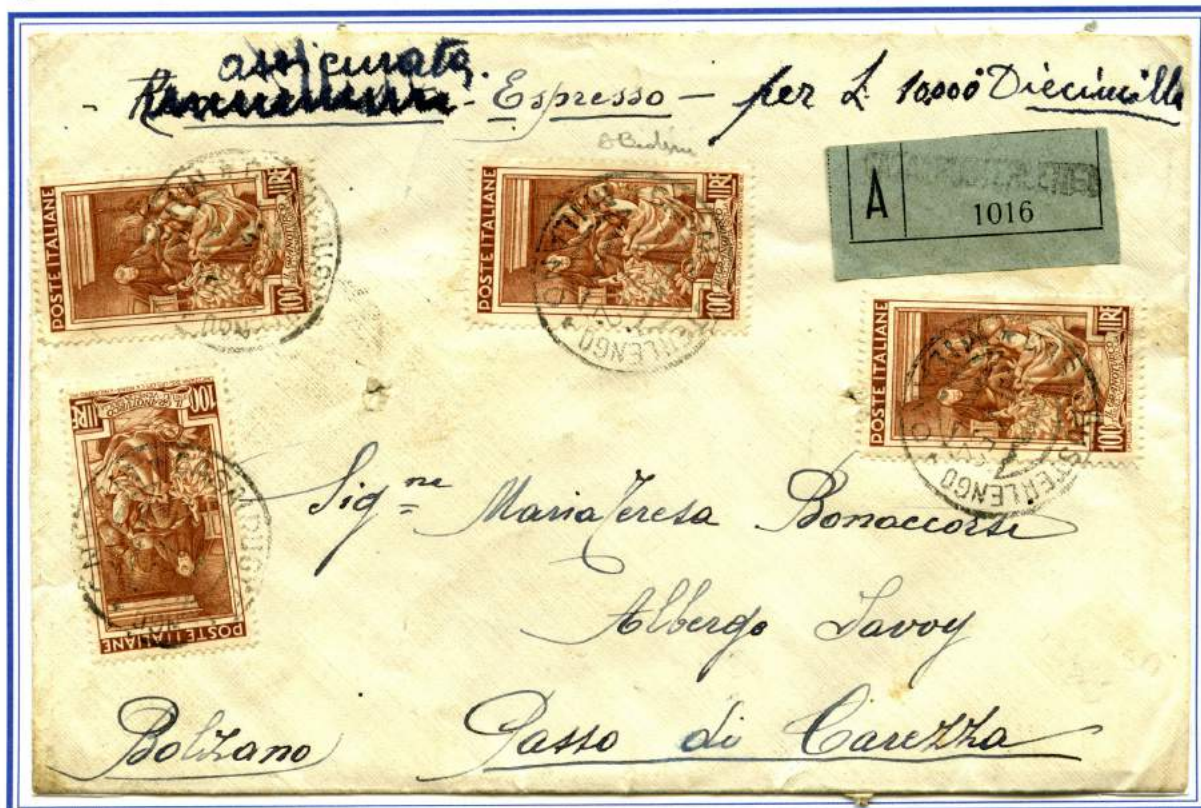 assicurata
- Espresso - per L 10000 Diecimilla
A 1016
POSTE ITALIANE 100 LIRE
POSTE ITALIANE 100 LIRE
POSTE ITALIANE 100 LIRE
POSTE ITALIANE 100 LIRE
Sig.ne Maria Teresa Bonaccorsi
Albergo Savoy
Bolzano Passo di Carezza